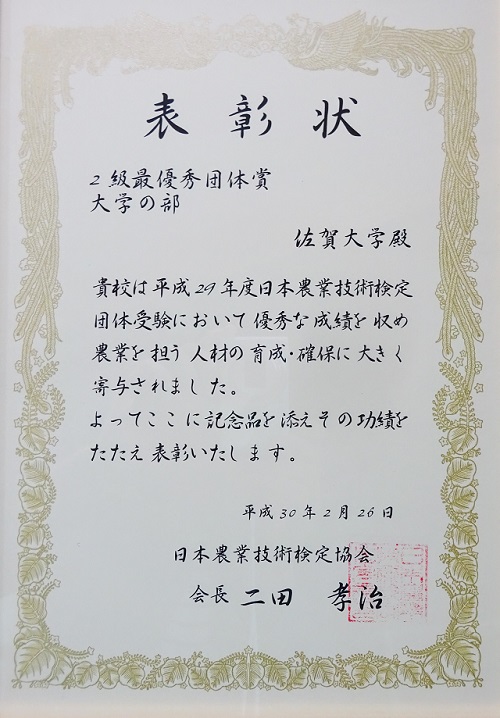 表彰状
2級最優秀団体賞
大学の部
佐賀大学殿
貴校は平成29年度日本農業技術検定
団体受験において優秀な成績を収め
農業を担う人材の育成・確保に大きく
寄与されました。
よってここに記念品を添えその功績を
たたえ表彰いたします。
平成30年2月26日
日本農業技術検定協会
会長 二田 孝治